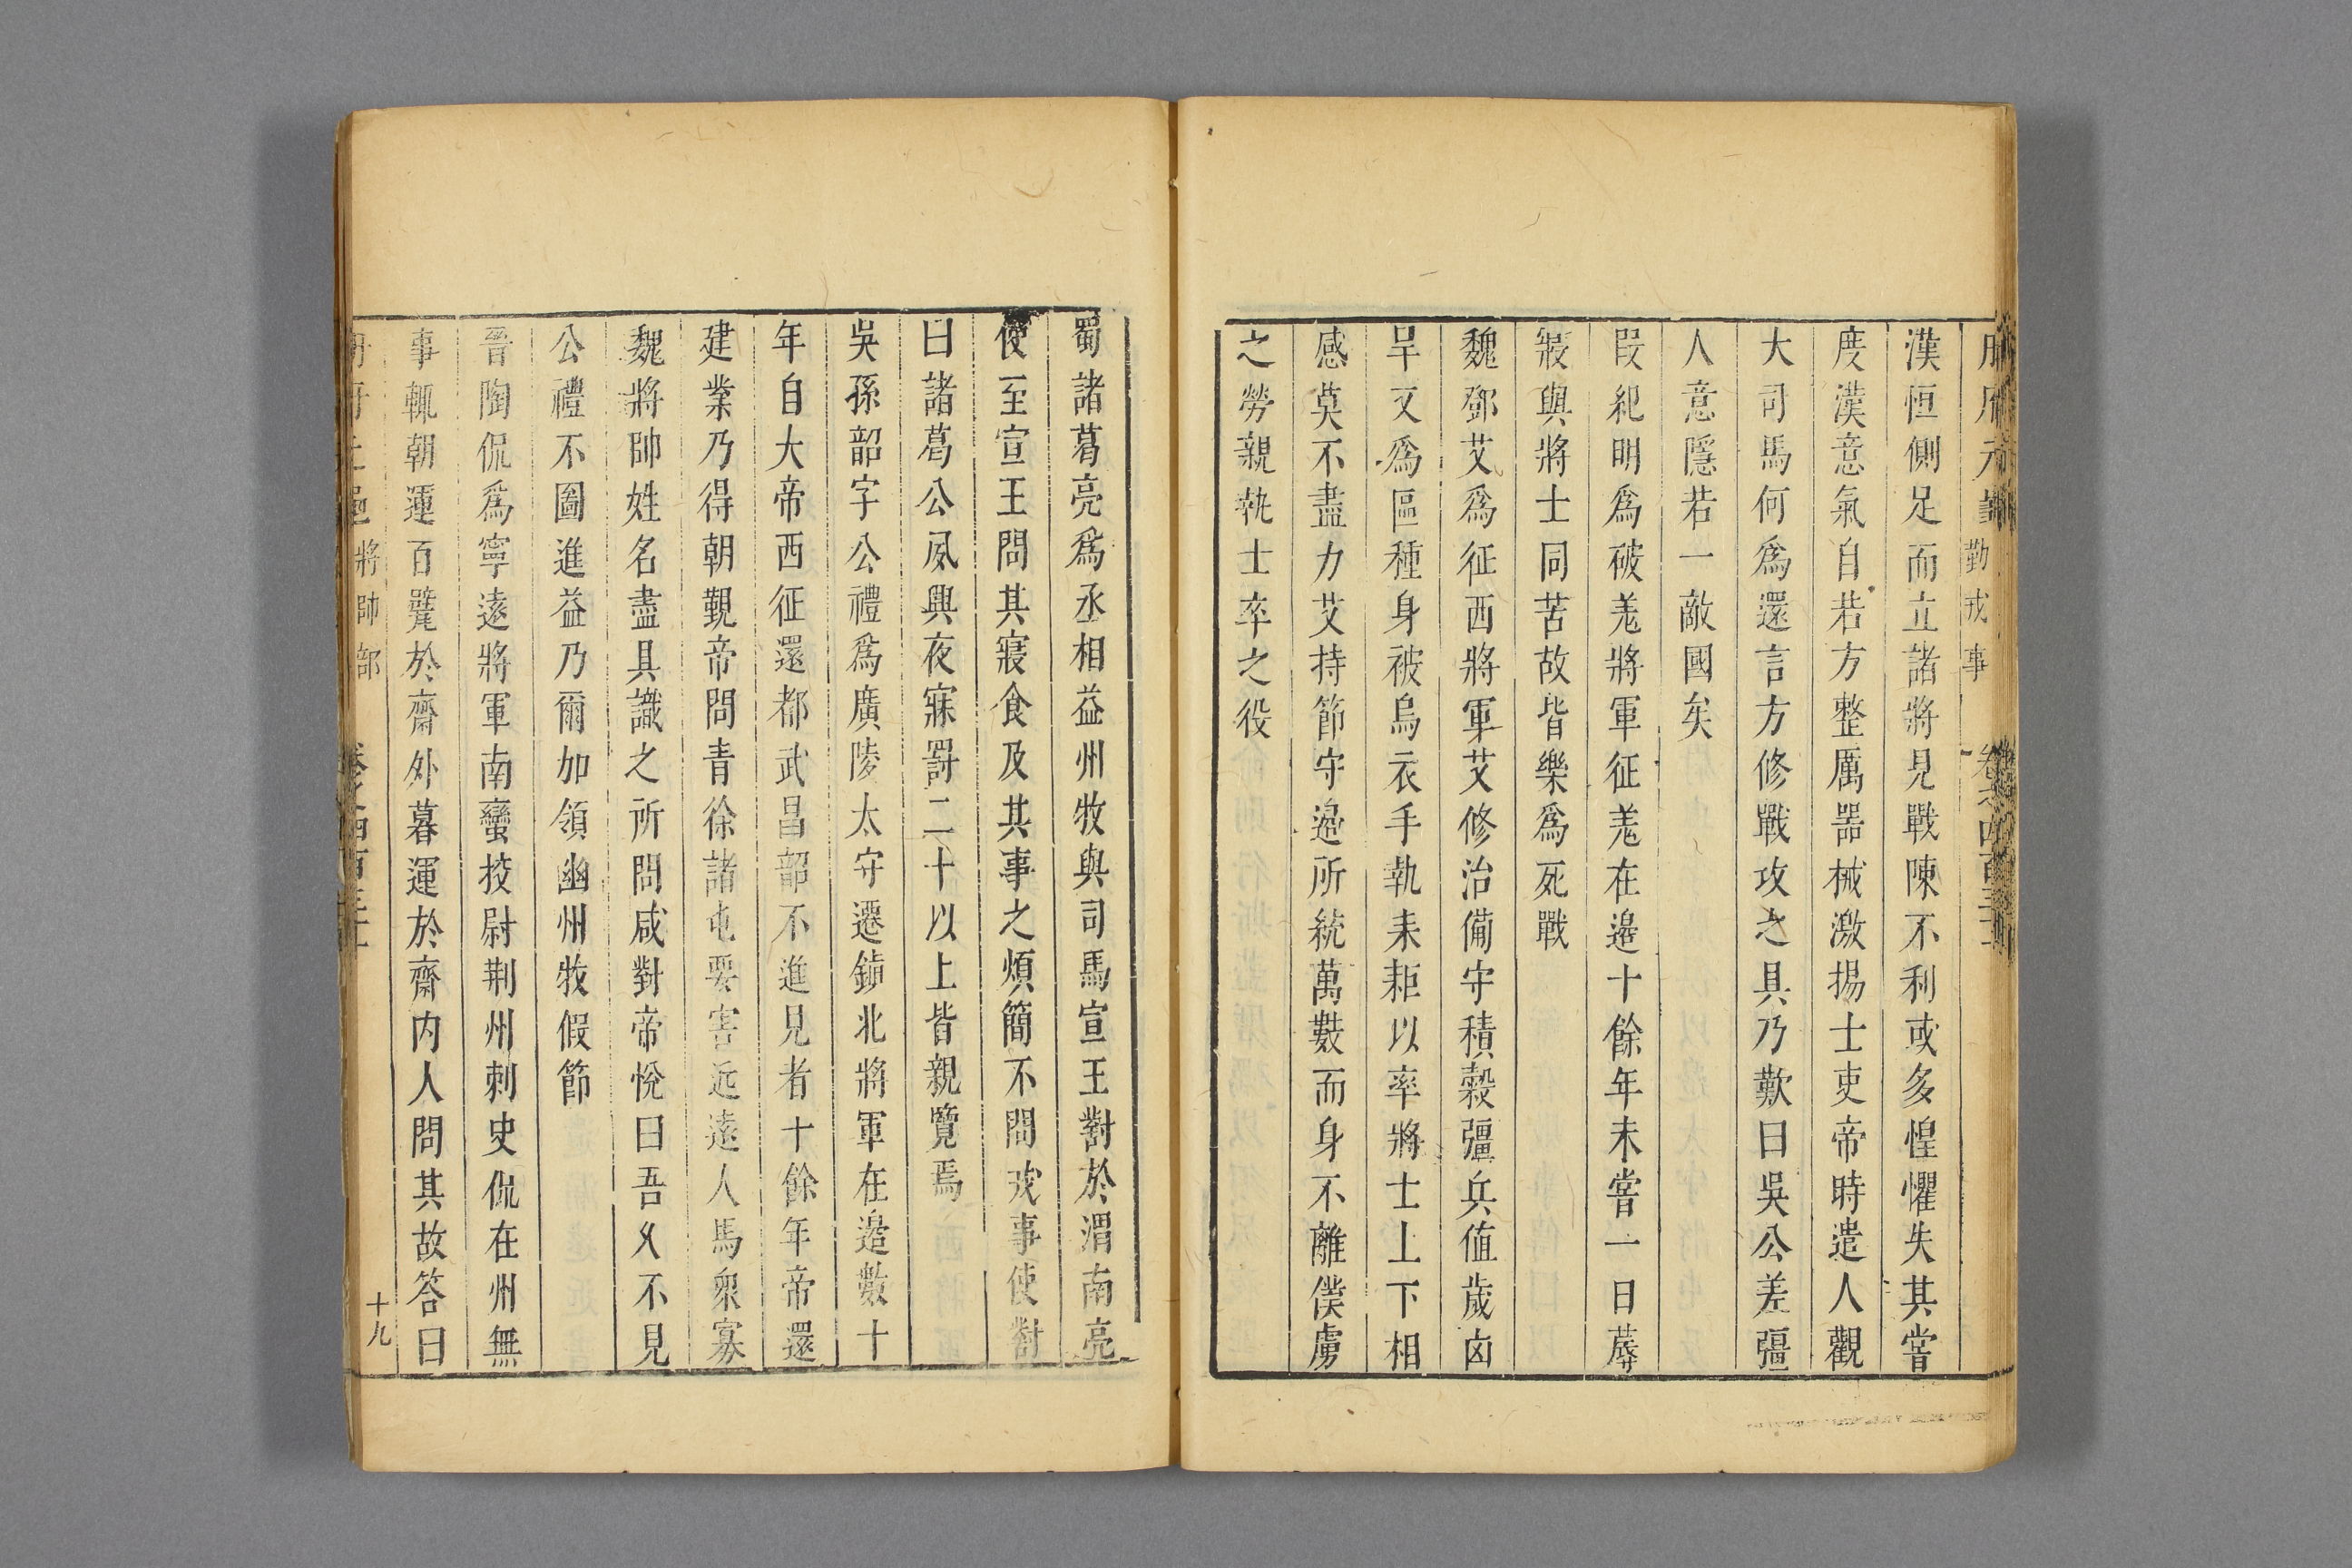 府元龜 勤戎事 卷之四百三十一
漢恒側足而立諸將見戰陳不利或多惶懼失其嘗
度漢意氣自若方整厲器械激揚士吏帝時遣人觀
大司馬何爲還言方修戰攻之具乃歎曰吳公差彊
人意隱若一敵國矣
段紀明爲破羌將軍征羌在邉十餘年未嘗一日蓐
寢與將士同苦故皆樂爲死戰
魏鄧艾爲征西將軍艾修治備守積穀彊兵值歲凶
旱又爲區種身被烏衣手執耒耟以率將士上下相
感莫不盡力艾持節守邉所統萬數而身不離僕虜
之勞親執士卒之役
蜀諸葛亮爲丞相益州牧與司馬宣王對於渭南亮
使至宣王問其寢食及其事之煩簡不問戎事使對
曰諸葛公夙興夜寐罰二十以上皆親覽焉
吳孫韶字公禮爲廣陵太守遷鎮北將軍在邉數十
年自大帝西征還都武昌韶不進見者十餘年帝還
建業乃得朝覲帝問青徐諸屯要害近遠人馬衆寡
魏將帥姓名盡具識之所問咸對帝悅曰吾久不見
公禮不圖進益乃爾加領幽州牧假節
晉陶侃爲寧遠將軍南蠻挍尉荆州刺史侃在州無
事輒朝運百甓於齋外暮運於齋内人問其故答曰
將帥部 十九